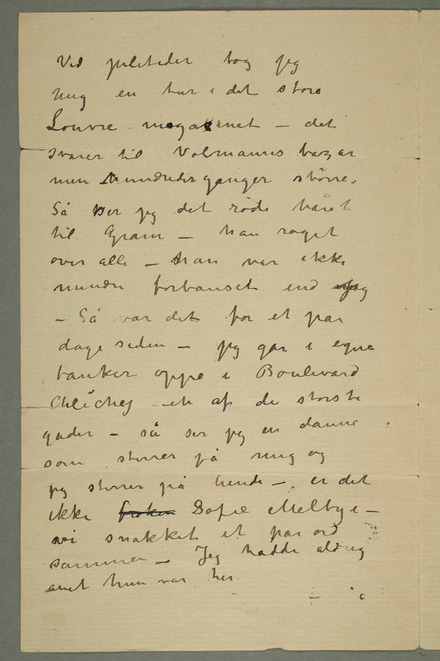 Ved juletider tog jeg
mig en tur i det store
Louvre magasinet – det
svarer til Volmanns bazar
men hundreder ganger større.
Så ser jeg det røde håret
til Gram – han raget
over alle – han var ikke
mindre forbauset end jeg
– Så var det for et par
dage siden – jeg går i egne
tanker oppe i Boulevard
Clichy – et af de største
gader – så ser jeg en dame
som stirrer på mig og
jeg stirrer på hende – er det
ikke frøken Sofie Melbye –
vi snakket et par ord
sammen – Jeg hadde aldrig
anet hun var her